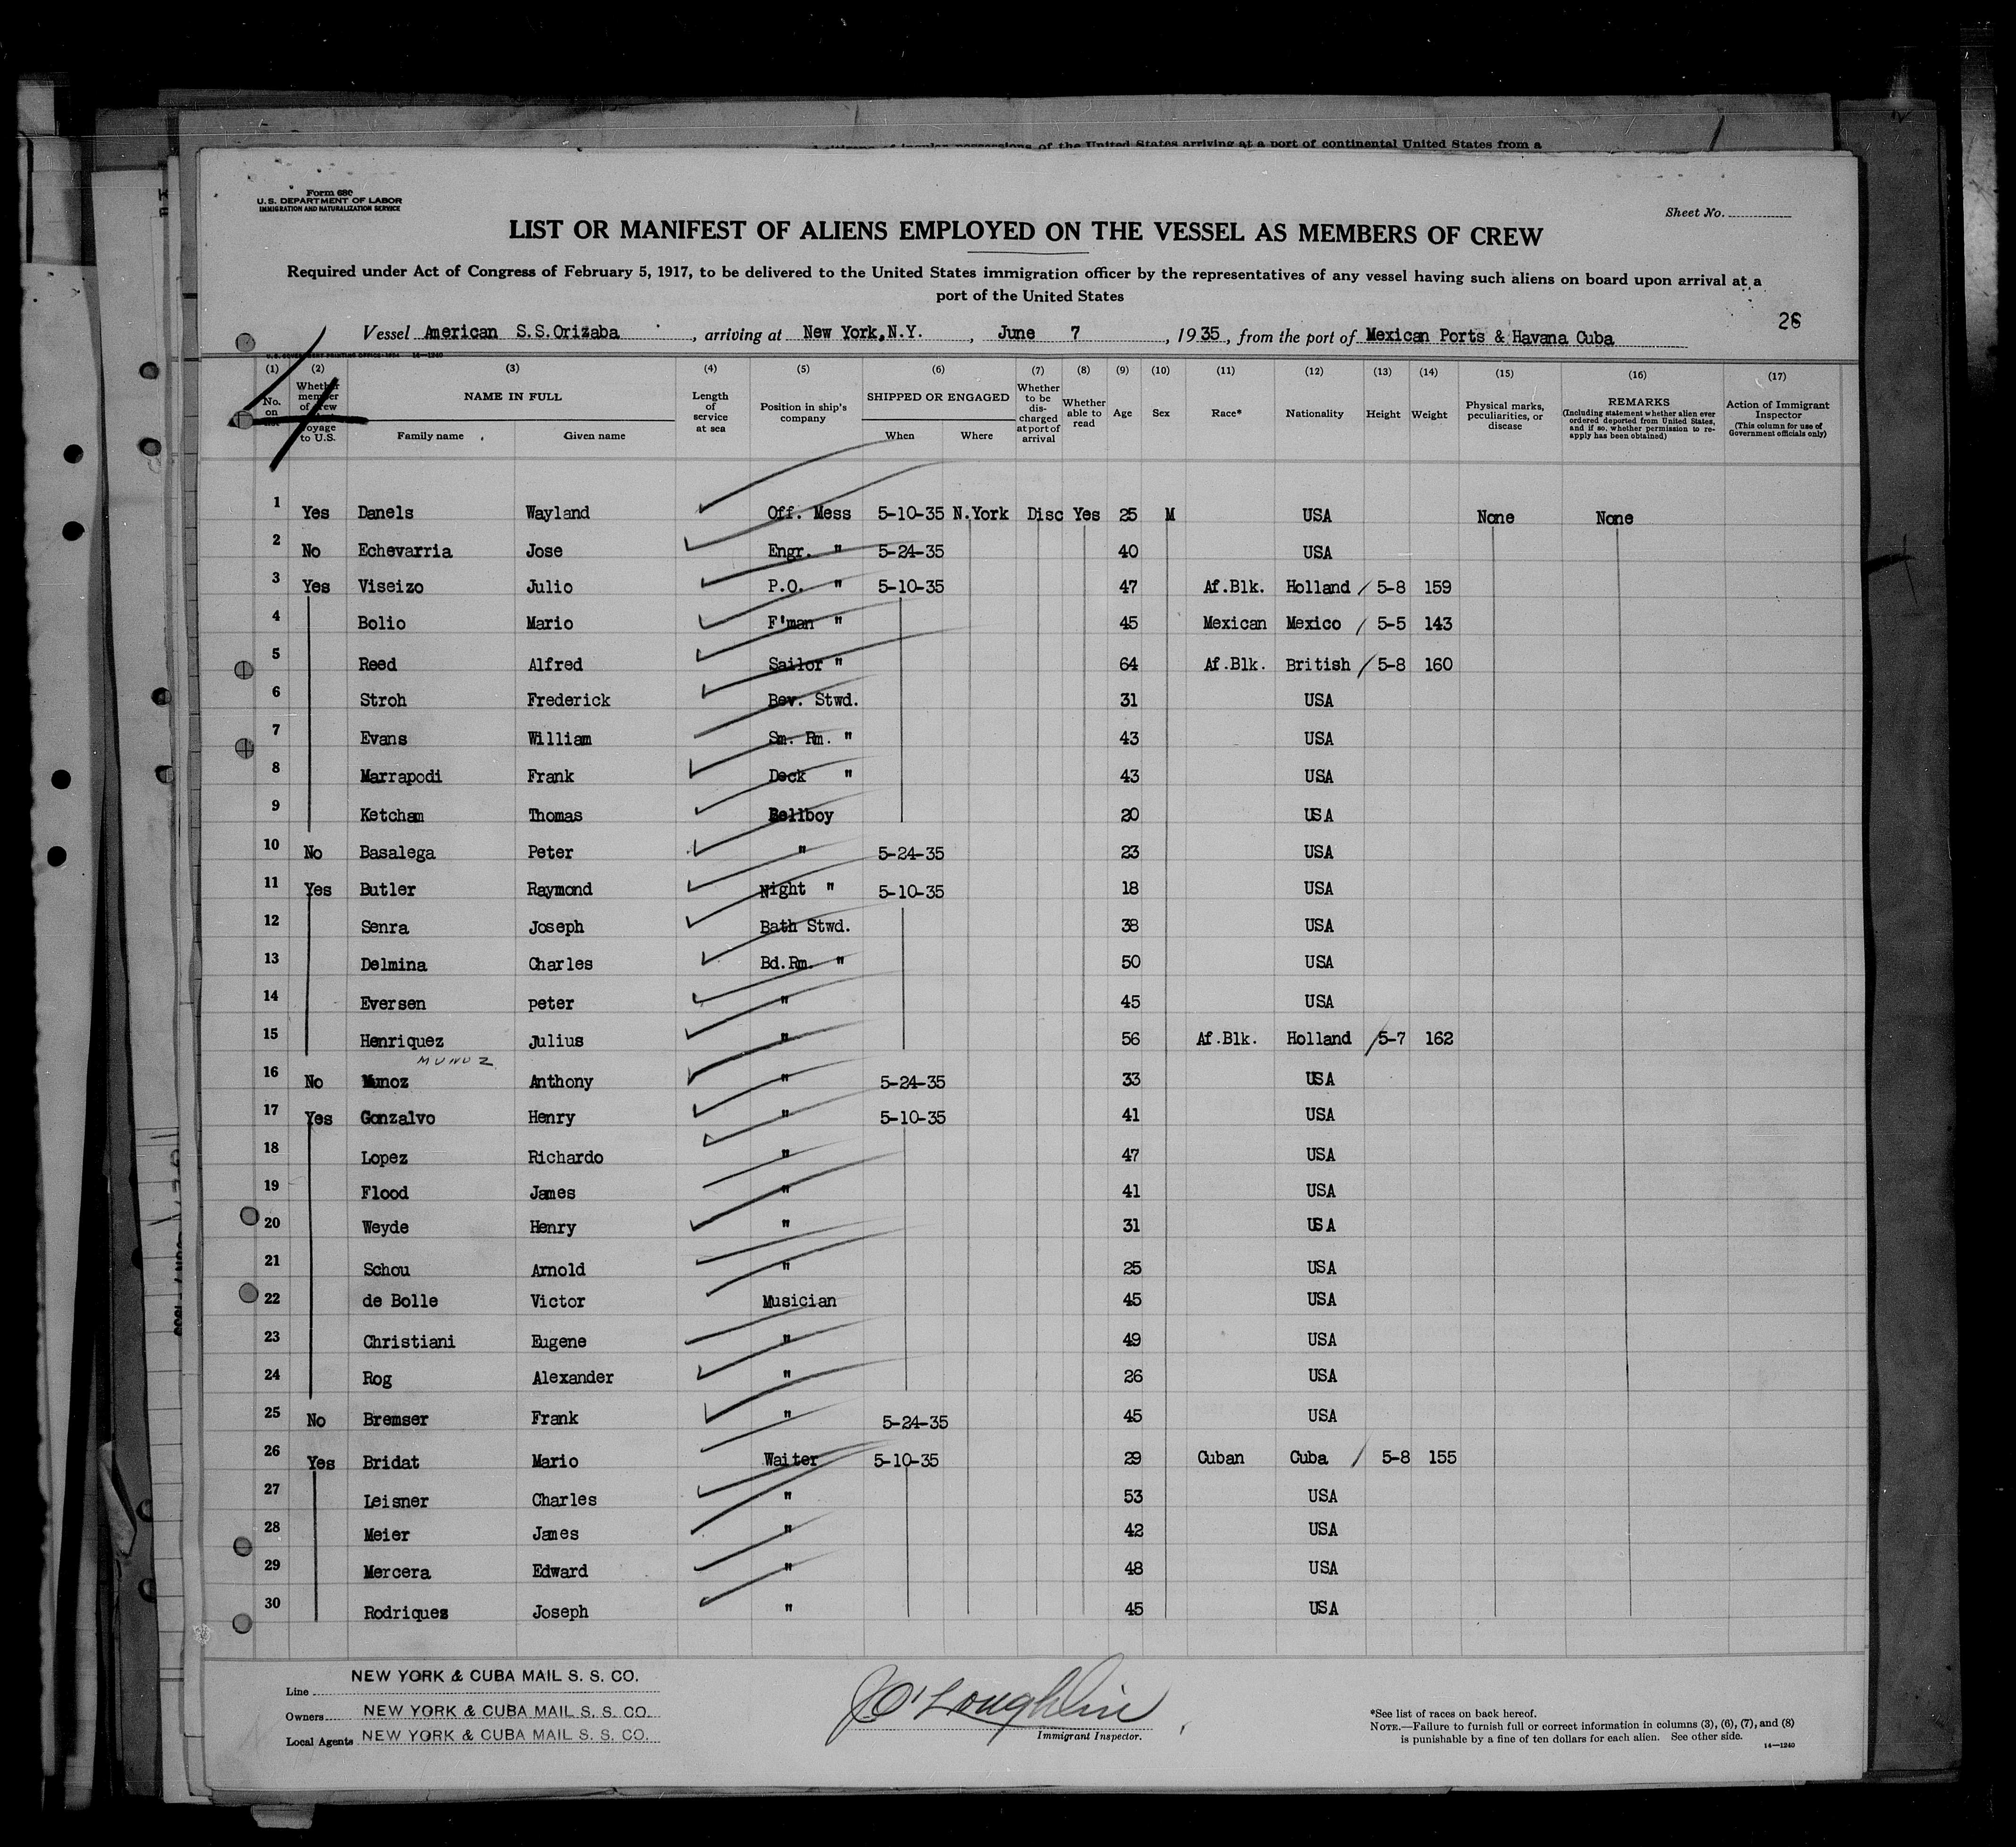 citizens of insular possessions of the United States arriving at a port of continental United States from a
Form 680
U. S. DEPARTMENT OF LABOR
IMMIGRATION AND NATURALIZATION SERVICE
Sheet No.
LIST OR MANIFEST OF ALIENS EMPLOYED ON THE VESSEL AS MEMBERS OF CREW
Required under Act of Congress of February 5, 1917, to be delivered to the United States immigration officer by the representatives of any vessel having such aliens on board upon arrival at a
port of the United States
26
Vessel American S.S.Orizaba, arriving at New York,N.Y., June 7, 1935, from the port of Mexican Ports & Havana Cuba
U. S. GOVERNMENT PRINTING OFFICE: 1934 14—1240
(1) (2) (3) (4) (5) (6) (7) (8) (9) (10) (11) (12) (13) (14) (15) (16) (17)
No. on list
Whether member of crew voyage to U.S.
NAME IN FULL
Family name Given name
Length of service at sea
Position in ship's company
SHIPPED OR ENGAGED
When Where
Whether to be discharged at port of arrival
Whether able to read
Age Sex Race* Nationality Height Weight
Physical marks, peculiarities, or disease
REMARKS
(Including statement whether alien ever ordered deported from United States, and if so, whether permission to reapply has been obtained)
Action of Immigrant Inspector
(This column for use of Government officials only)
1 Yes Danels Wayland Off. Mess 5-10-35 N.York Disc Yes 25 M USA None None
2 No Echevarria Jose Engr. " 5-24-35 40 USA
3 Yes Viseizo Julio P.O. " 5-10-35 47 Af.Blk. Holland / 5-8 159
4 Bolio Mario F'man " 45 Mexican Mexico / 5-5 143
5 Reed Alfred Sailor " 64 Af.Blk. British / 5-8 160
6 Stroh Frederick Bev. Stwd. 31 USA
7 Evans William Sm. Rm. " 43 USA
8 Marrapodi Frank Deck " 43 USA
9 Ketcham Thomas Bellboy 20 USA
10 No Basalega Peter " 5-24-35 23 USA
11 Yes Butler Raymond Night " 5-10-35 18 USA
12 Senra Joseph Bath Stwd. 38 USA
13 Delmina Charles Bd.Rm. " 50 USA
14 Eversen peter " 45 USA
15 Henriquez Julius " 56 Af.Blk. Holland / 5-7 162
MUNUZ
16 No Munoz Anthony " 5-24-35 33 USA
17 Yes Gonzalvo Henry " 5-10-35 41 USA
18 Lopez Richardo " 47 USA
19 Flood James " 41 USA
20 Weyde Henry " 31 USA
21 Schou Arnold " 25 USA
22 de Bolle Victor Musician 45 USA
23 Christiani Eugene " 49 USA
24 Rog Alexander " 26 USA
25 No Bremser Frank " 5-24-35 45 USA
26 Yes Bridat Mario Waiter 5-10-35 29 Cuban Cuba / 5-8 155
27 Leisner Charles " 53 USA
28 Meier James " 42 USA
29 Mercera Edward " 48 USA
30 Rodriques Joseph " 45 USA
Line NEW YORK & CUBA MAIL S. S. CO.
Owners NEW YORK & CUBA MAIL S. S. CO.
Local Agents NEW YORK & CUBA MAIL S. S. CO.
J O'Loughlin
Immigrant Inspector.
*See list of races on back hereof.
NOTE.—Failure to furnish full or correct information in columns (3), (6), (7), and (8)
is punishable by a fine of ten dollars for each alien. See other side.
14—1240